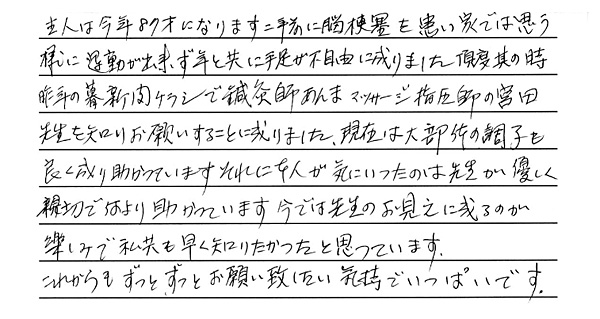 主人は今年87才になります二年前に脳梗塞を患い家では思う
様に運動が出来ず年と共に手足が不自由に成りました頂度其の時
昨年の暮新聞チラシで鍼灸師あんまマッサージ指圧師の宮田
先生を知りお願いすることに成りました、現在は大部体の調子も
良く成り助かっていますそれに本人が気にいったのは先生が優しく
親切で何より助かっています今では先生のお見えに成るのが
楽しみで私共も早く知りたかったと思っています。
これからもずっと、ずっとお願い致したい気持でいっぱいです。